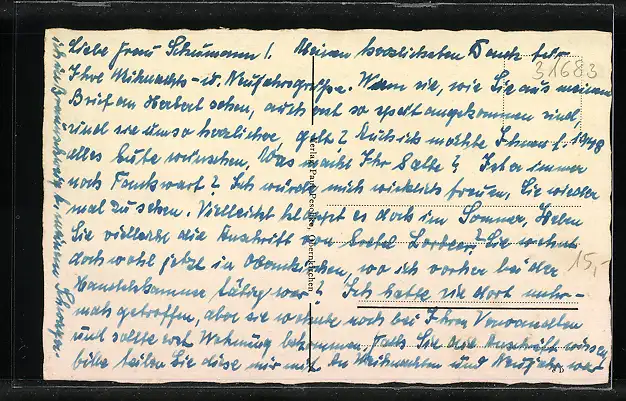 Liebe Frau Schumann! Meinen herzlichsten Dank für
Ihre Weihnachts- u. Neujahrsgrüße. Wenn sie, wie Sie aus meinem
Brief an Herbert sehen, auch erst so spät angekommen sind
sind sie umso herzlicher, gelt? Auch ich möchte Ihnen f. 1948
alles Gute wünschen. Was macht Ihr Gatte? Ist er immer
noch Tankwart? Ich würde mich wirklich freuen, Sie wieder
mal zu sehen. Vielleicht klappt es doch im Sommer. Haben
Sie vielleicht die Anschrift von Gretel Lorbeer? Sie wohnt
doch wohl jetzt in Obernkirchen, wo ich vorher bei der
Handelskammer tätig war? Ich hatte sie dort mehr-
mals getroffen, aber sie wohnte noch bei Ihren Verwandten
und sollte erst Wohnung bekommen. Falls Sie die Anschrift wissen,
bitte teilen Sie diese mir mit. An Weihnachten und Neujahr war
ich in Braunschweig b. meinem Schwager.
31683
15,-
Verlag Paul Peschke, Obernkirchen